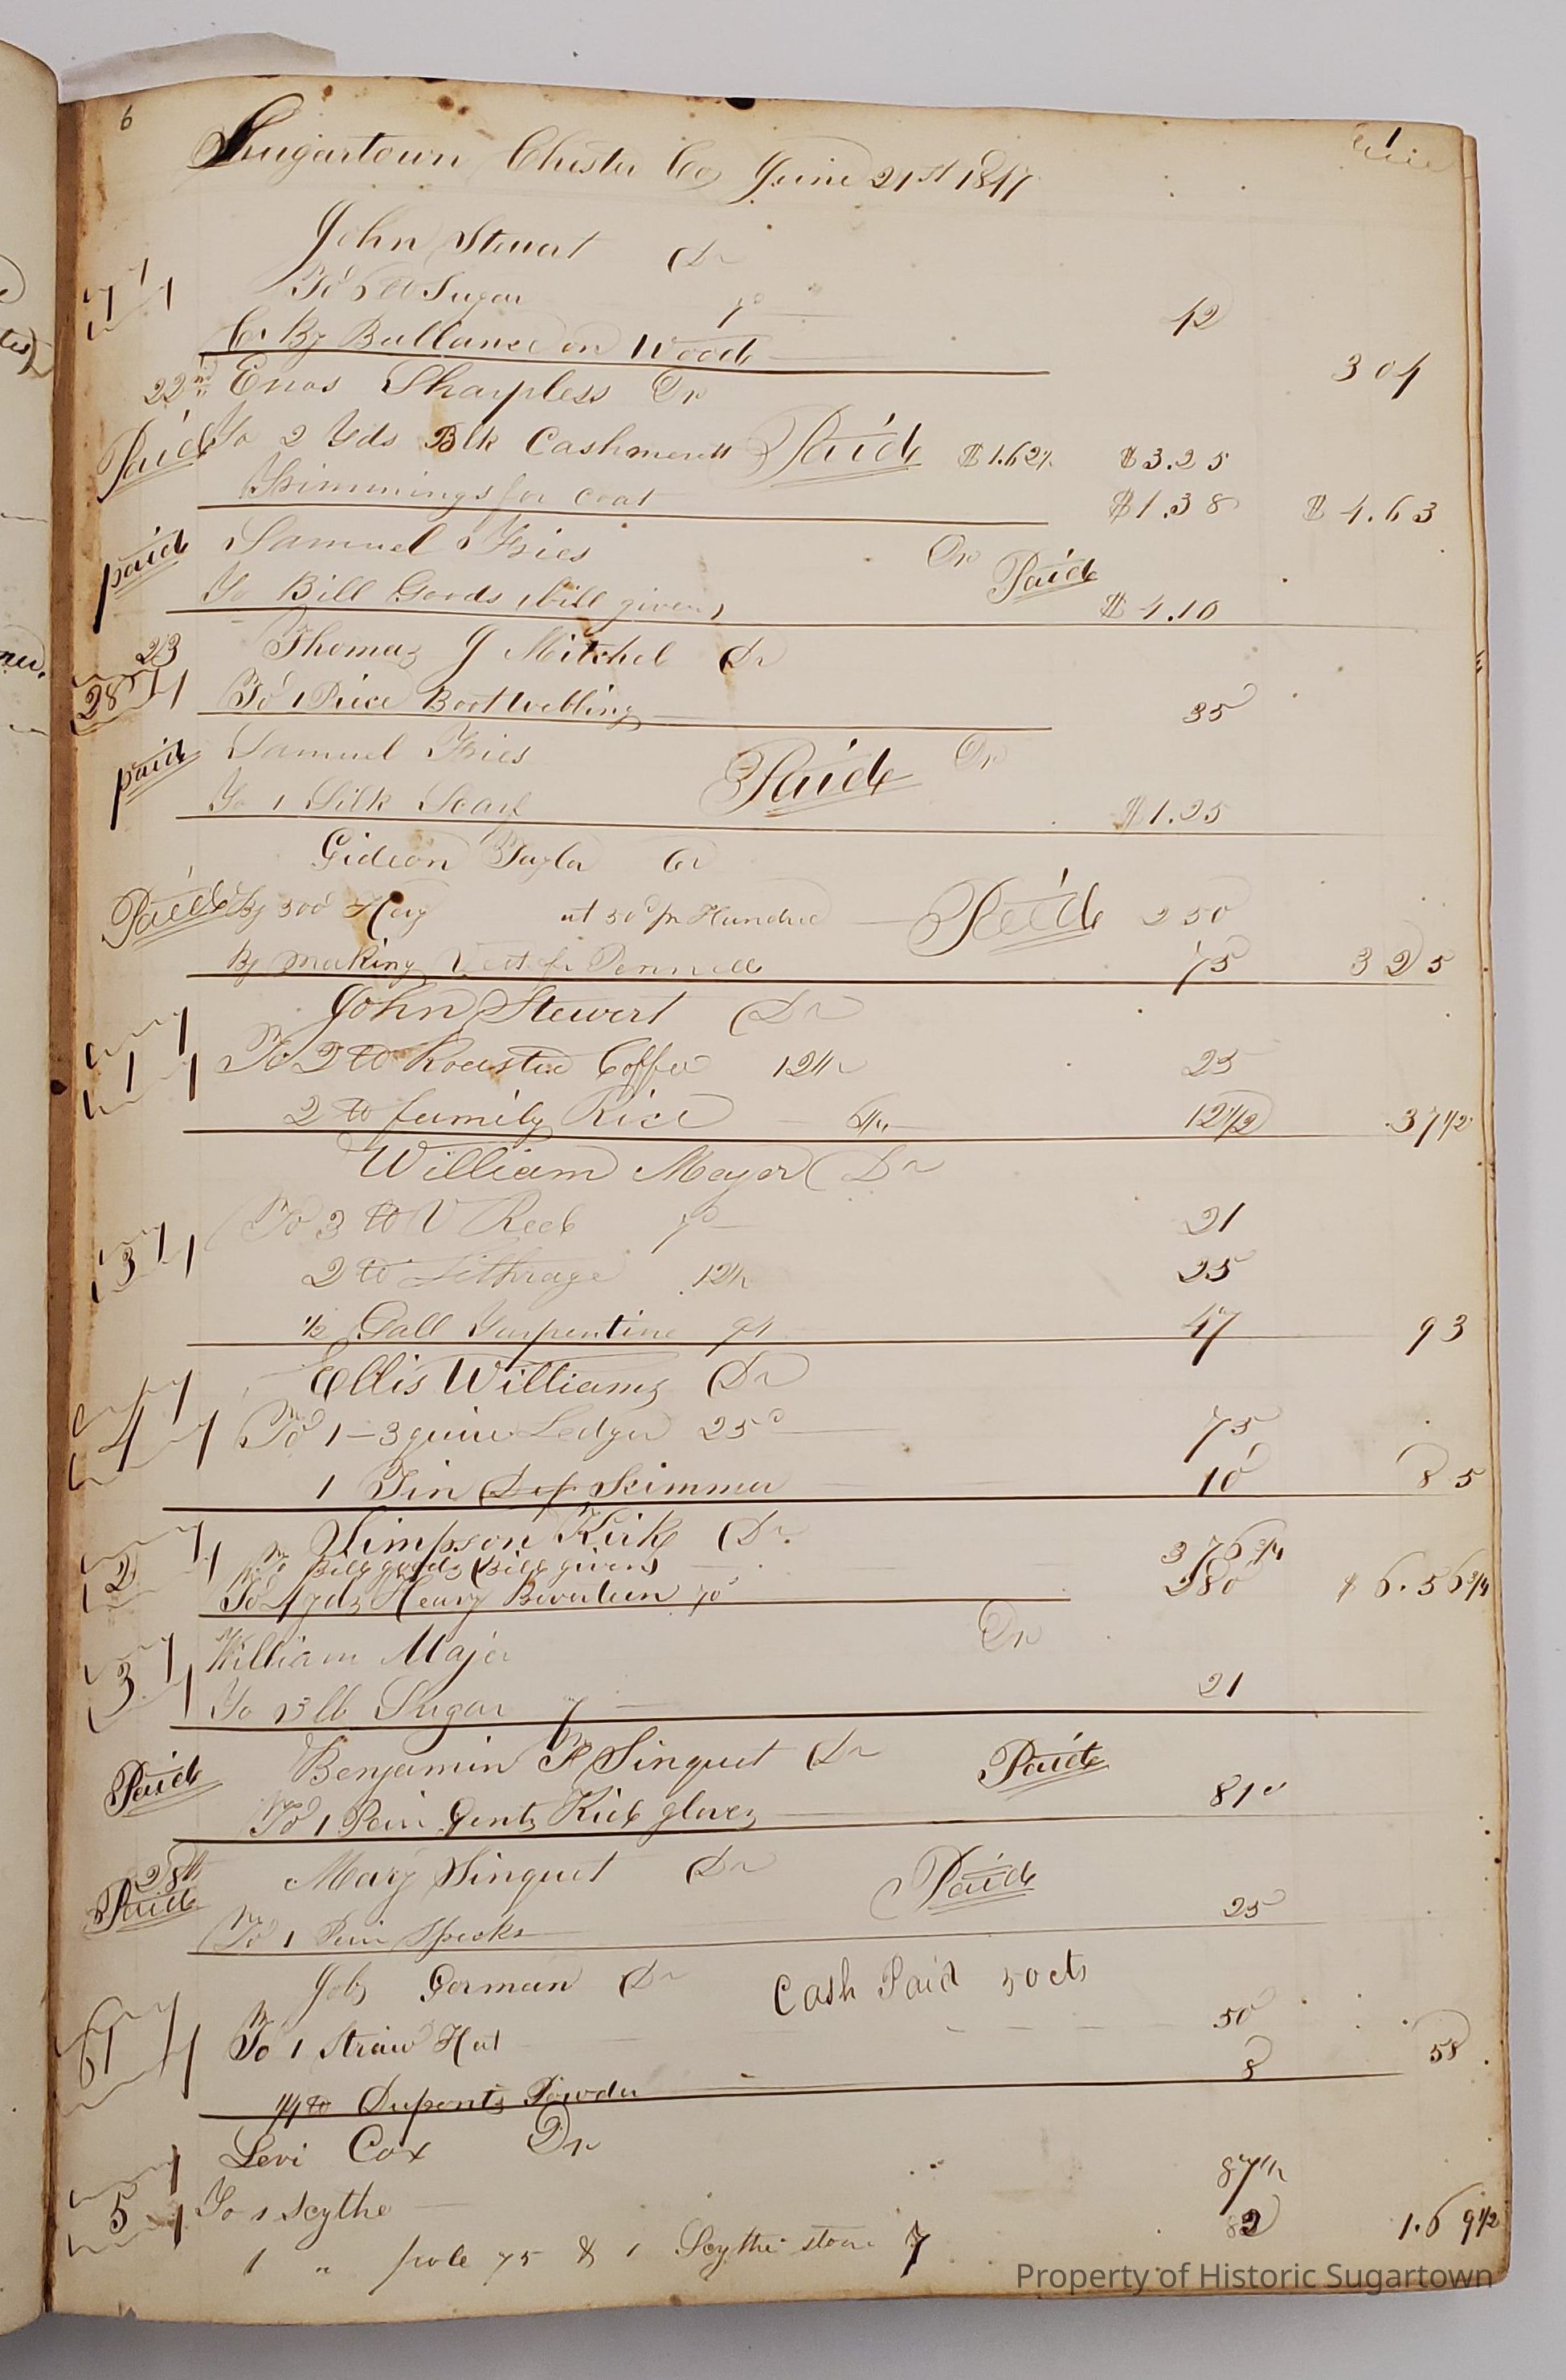 6
1
Sugartown Chester Co June 21st 1847
John Stewart Dr
1 To 6 lb Sugar 7c 42
Cr By Ballance on Wood 304
22nd Enos Sharpless Dr
Paid To 2 Yds Blk Cashmerett Paid $1.62½ $3.25
Trimmings for coat $1.38 $4.63
paid Samuel Fries Dr Paid
To Bill Goods (bill given) $4.10
23 Thomas J Mitchel Dr
28 To 1 Piece Boot Webbing 35
paid Samuel Fries Paid Dr
To 1 Silk Scarf $1.25
Gideon Taylor Cr
Paid By 500 Hay at 50c pr Hundred 250
By making Vest for Pennell 75 325
John Stewert Dr
1 To 2 lb Roasted Coffee 12½ 25
2 lb family Rice 6¼ 12½ 37½
William Major Dr
3 To 3 lb V Red 7c 21
2 lb Lithrage 12½ 25
½ Gall Turpentine 94 47 93
Ellis Williams Dr
4 To 1 - 3 quire Ledger 25c 75
1 Tin Dip Skimmer 10 85
Simpson Kirk Dr
2 To Bill goods (Bill given) 376¾
To 4 yds Heavy Beverteen 70c 280 $6.56¾
3 William Major Dr
To 3 lb Sugar 7 21
Benjamin F Singuet Dr Paid
Paid To 1 Pair Gents Kid gloves 81c
28th Mary Singuet Dr Paid
Paid To 1 Pair Specks 25
Job German Dr Cash Paid 50 cts
61 To 1 Straw Hat 50
¼ lb Duponts Powder 8 58
Levi Cox Dr
5 To 1 Scythe 87½
1 " pole 75 & 1 Scythe stone 7 82 1.69½
Property of Historic Sugartown